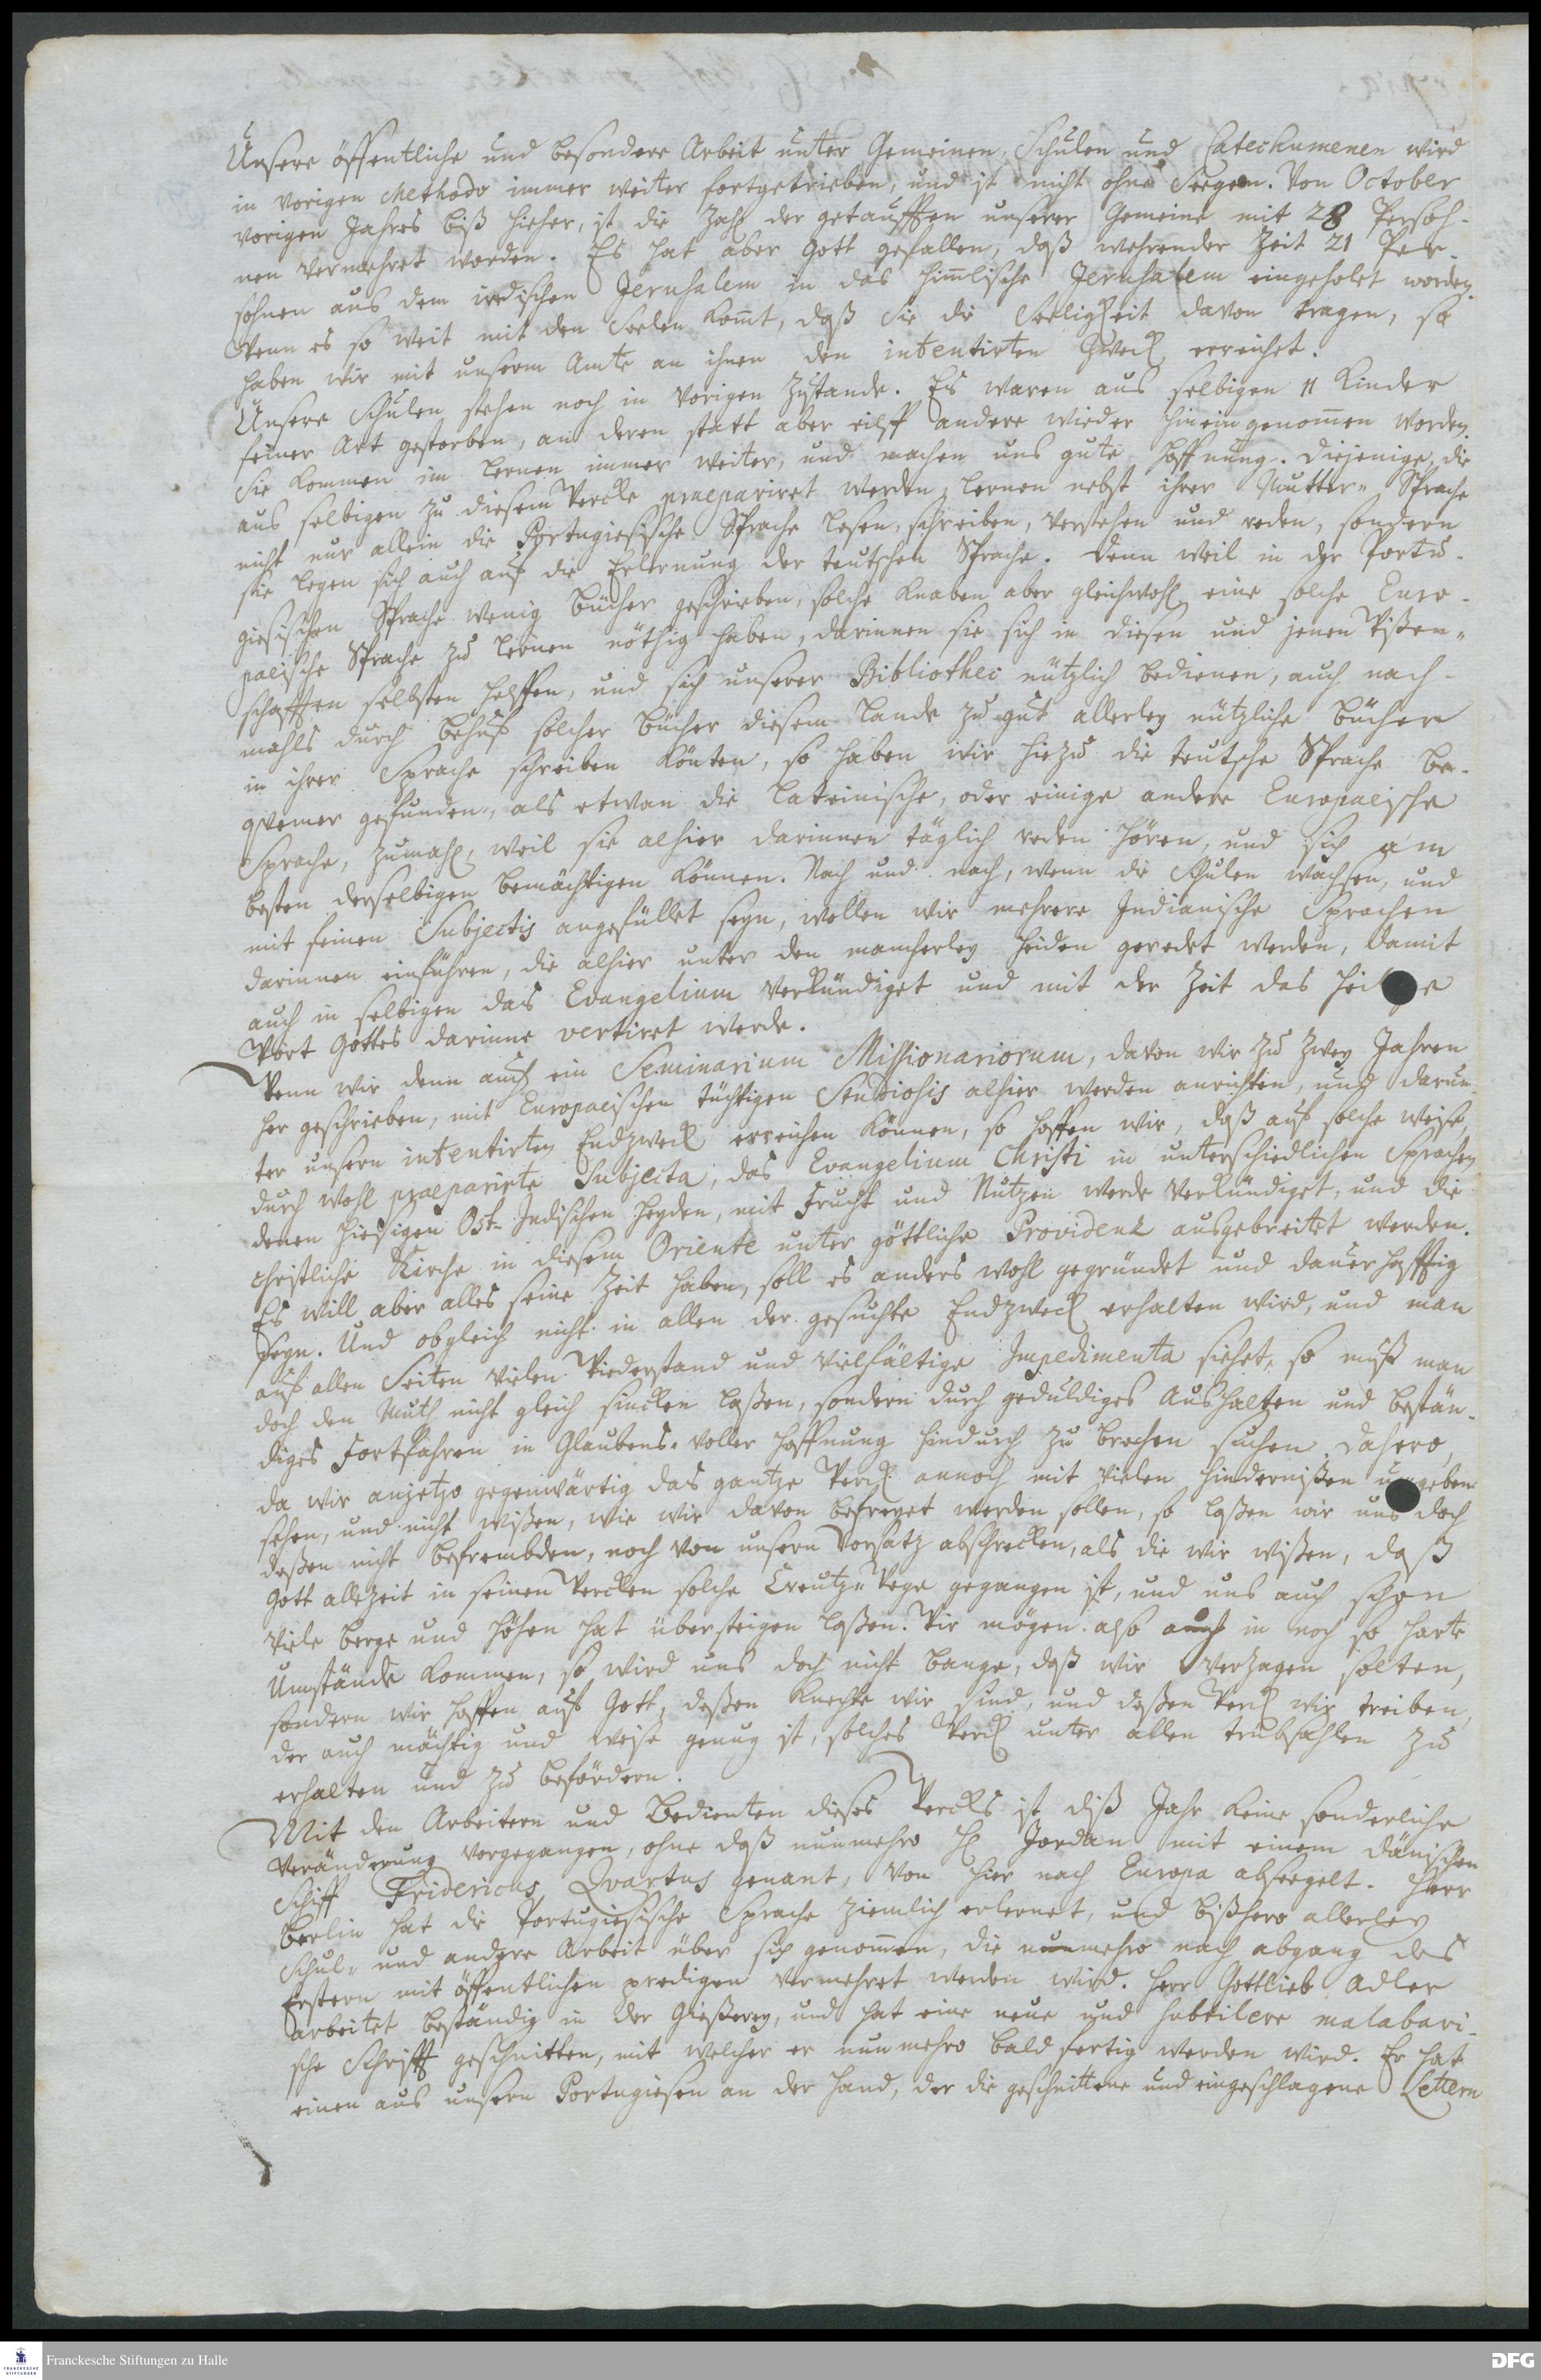 Unsere öffentliche und besondere Arbeit unter Gemeinen, Schulen und Catechumenen wird
in vorigen Methodo immer weiter fortgetrieben, und ist nicht ohne Seegen. Von October
vorigen Jahres biß hieher, ist die Zahl der getaufften unserer Gemeine mit 28 Persoh-
nen vermehret worden. Es hat aber Gott gefallen, daß wehrender Zeit 21 Per-
sohnen aus dem irrdischen Jerusalem in das himlische Jerusalem eingeholet worden.
Wenn es so weit mit den Seelen komt, daß Sie die Seeligkeit davon tragen, so
haben wir mit unserm Amte an ihnen den intentirten Zweck erreichet.
Unsere Schulen stehen noch in vorigen Zustande. Es waren aus selbigen 11 Kinder
feiner Art gestorben, an deren statt aber eilff andere wieder hinein genomen worden.
Sie kommen im Lernen immer weiter, und machen uns gute Hoffnung. Diejenige, die
aus selbigen zu diesem Wercke praepariret werden, lernen nebst ihrer Mutter-Sprache
nicht nur allein die Portugiesische Sprache lesen, schreiben, verstehen und reden, sondern
sie legen sich auch auf die Erlernung der teutschen Sprache. Denn weil in der Portu-
giesischen Sprache wenig Bücher geschrieben, solche Knaben aber gleichwohl eine solche Euro-
paeische Sprache zu lernen nöthig haben, darinnen sie sich in diesen und jenen Wißen-
schafften selbsten helffen, und sich unserer Bibliothec nützlich bedienen, auch nach-
mahls durch Behuf solcher Bücher diesem Lande zu gut allerley nützliche Bücher
in ihrer Sprache schreiben könten, so haben wir hiezu die teutsche Sprache be-
qvemer gefunden, als etwan die Lateinische, oder einige andere Europaeische
Sprache, zumahl, weil sie alhier darinnen täglich reden hören, und sich am
besten derselbigen bemächtigen können. Nach und nach, wenn die Schulen wachsen, und
mit feinen Subjectis angefüllet seyn, wollen wir mehrere Indianische Sprachen
darinnen einführen, die alhier unter den mancherley Heiden geredet werden, damit
auch in selbigen das Evangelium verkündiget und mit der Zeit das heilige
Wort Gottes darinne vertiret werde.
Wenn wir denn auch ein Seminarium Missionariorum, davon wir zu zwey Jahren
her geschrieben, mit Europaeischen tüchtigen Studiosis alhier werden anrichten, und darun-
ter unsern intentirten Endzweck erreichen können, so hoffen wir, daß auf solche weise,
durch wohl praeparirte Subjecta, das Evangelium Christi in unterschiedlichen Sprachen
denen hiesigen Ost-Indischen Heyden, mit Frucht und Nutzen werde verkündiget, und die
christliche Kirche in diesem Oriente unter göttliche Providenz ausgebreitet werden.
Es will aber alles seine Zeit haben, soll es anders wohl gegründet und dauerhafftig
seyn. Und obgleich nicht in allen der gesuchte Endzweck erhalten wird, und man
auf allen Seiten vielen Wiederstand und vielfältige Impedimenta siehet, so muß man
doch den Muth nicht gleich sincken laßen, sondern durch gedultiges Aushalten und bestän-
diges Fortfahren in Glaubens-voller Hoffnung hindurch zu brechen suchen. Dahero,
da wir anjetzo gegenwärtig das gantze Werck annoch mit vielen Hindernißen umgeben
sehen, und nicht wißen, wie wir davon befreyet werden sollen, so laßen wir uns doch
deßen nicht befrembden, noch von unsern Vorsatz abschrecken, als die wir wißen, daß
Gott allezeit in seinen Wercken solche Creutz-Wege gegangen ist, und uns auch schon
viele Berge und Höhen hat übersteigen laßen. Wir mögen also auch in noch so harte
Umstände kommen, so wird uns doch nicht bange, daß wir verzagen solten,
sondern wir hoffen auf Gott, deßen Knechte wir sind, und deßen Werck wir treiben,
der auch mächtig und weise genug ist, solches Werck unter allen Trübsahlen zu
erhalten und zu befördern.
Mit den Arbeitern und Bedienten dieses Wercks ist diß Jahr keine sonderliche
Veränderung vorgegangen, ohne daß nunmehro H. Jordan mit einem Dänischen
Schiff Fridericus Qvartus genant, von hier nach Europa abseegelt. Herr
Berlin hat die Portugiesische Sprache ziemlich erlernet, und bißhero allerley
Schul- und andere Arbeit über sich genommen, die nunmehro nach abgang des
Erstern mit öffentlichen predigen vermehret werden wird. Herr Gottlieb Adler
arbeitet beständig in der Gießerey, und hat eine neue und subtilere malabari-
sche Schrifft geschnitten, mit welcher er nunmehro bald fertig werden wird. Er hat
einen aus unsern Portugiesen an der Hand, der die geschnittene und eingeschlagene Lettern
Franckesche Stiftungen zu Halle
DFG